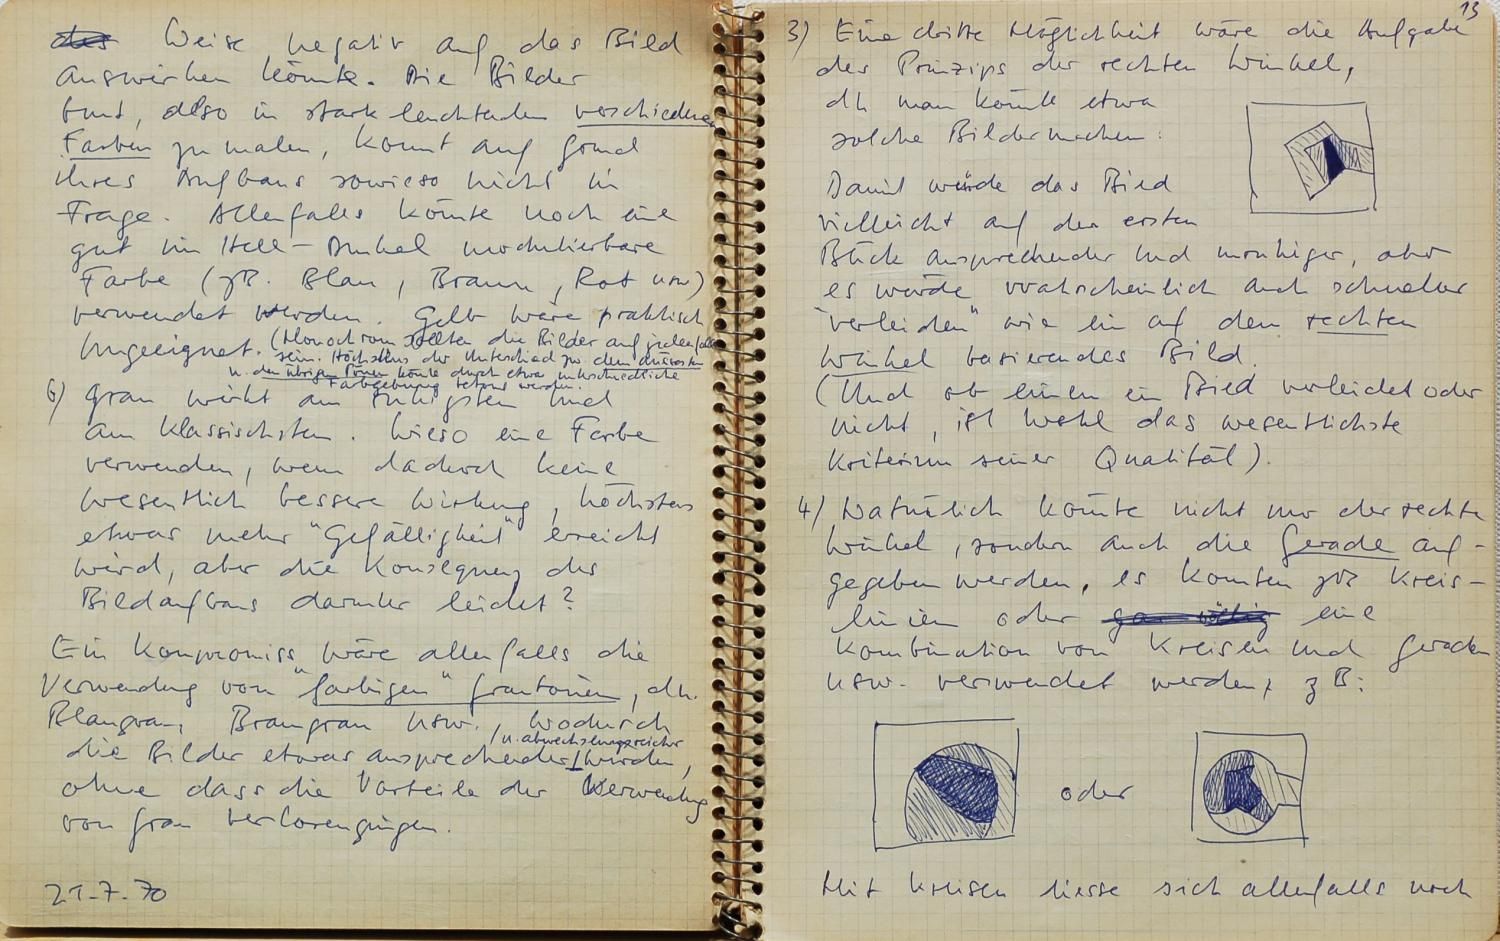 Weise negativ auf das Bild
auswirken könnte. Die Bilder
bunt, also in stark leuchtenden verschiedenen
Farben zu malen, kommt auf Grund
ihres Aufbaus sowieso nicht in
Frage. Allenfalls könnte noch eine
gut im Hell-Dunkel modulierbare
Farbe (zB. Blau, Braun, Rot usw)
verwendet werden. Gelb wäre praktisch
ungeeignet. (Monochrom sollten die Bilder auf jeden Fall
sein. Höchstens der Unterschied zu dem äussersten
u. den übrigen Tönen könnte durch etwas unterschiedliche
Farbgebung betont werden.
6) Grau wirkt am ruhigsten und
am klassischsten. Wieso eine Farbe
verwenden, wenn dadurch keine
wesentlich bessere Wirkung, höchstens
etwas mehr "Gefälligkeit" erreicht
wird, aber die Konsequenz des
Bildaufbaus darunter leidet?
Ein Kompromiss wäre allenfalls die
Verwendung von "farbigen" Grautönen, dh.
Blaugrau, Braungrau usw., wodurch
die Bilder etwas ansprechender u. abwechslungsreicher würden,
ohne dass die Vorteile der Verwendung
von Grau verlorengingen.
21-7-70
13
3) Eine dritte Möglichkeit wäre die Aufgabe
des Prinzips der rechten Winkel,
dh man könnte etwa
solche Bilder machen:
Damit würde das Bild
vielleicht auf den ersten
Blick ansprechender und unruhiger, aber
es würde wahrscheinlich auch schneller
"verleiden" wie ein auf dem rechten
Winkel basierendes Bild.
(Und ob einem ein Bild verleidet oder
nicht, ist wohl das wesentlichste
Kriterium seiner Qualität).
4) Natürlich könnte nicht nur der rechte
Winkel, sondern auch die Gerade auf-
gegeben werden, es könnten zB Kreis-
linien oder eine
Kombination von Kreisen und Geraden
usw. verwendet werden, zB:
oder
Mit Kreisen liesse sich allenfalls noch